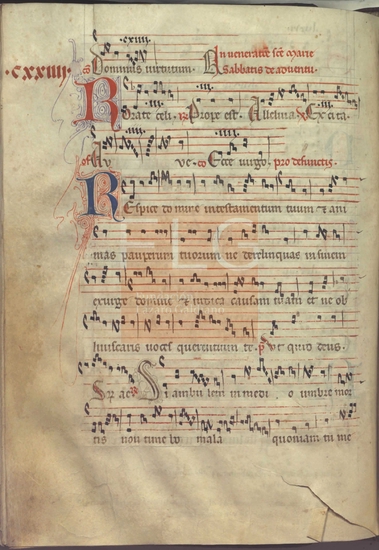 .cxxiiij.
.cxxiiij.
Dominus virtutum. In veneratione sce marie
Sabbatis de adventu.
Rorate celi. Prope est. Alleluia Excita
Av ve. Ecce virgo. pro defunctis.
Respice domine in testamentum tuum & ani
mas pauperum tuorum ne derelinquas in finem
exurge domine & iudica causam tuam et ne ob
liviscaris voces querentium te. Ut quid deus.
Si ambulem in medi o umbre mor
tis non timebo mala quoniam tu me